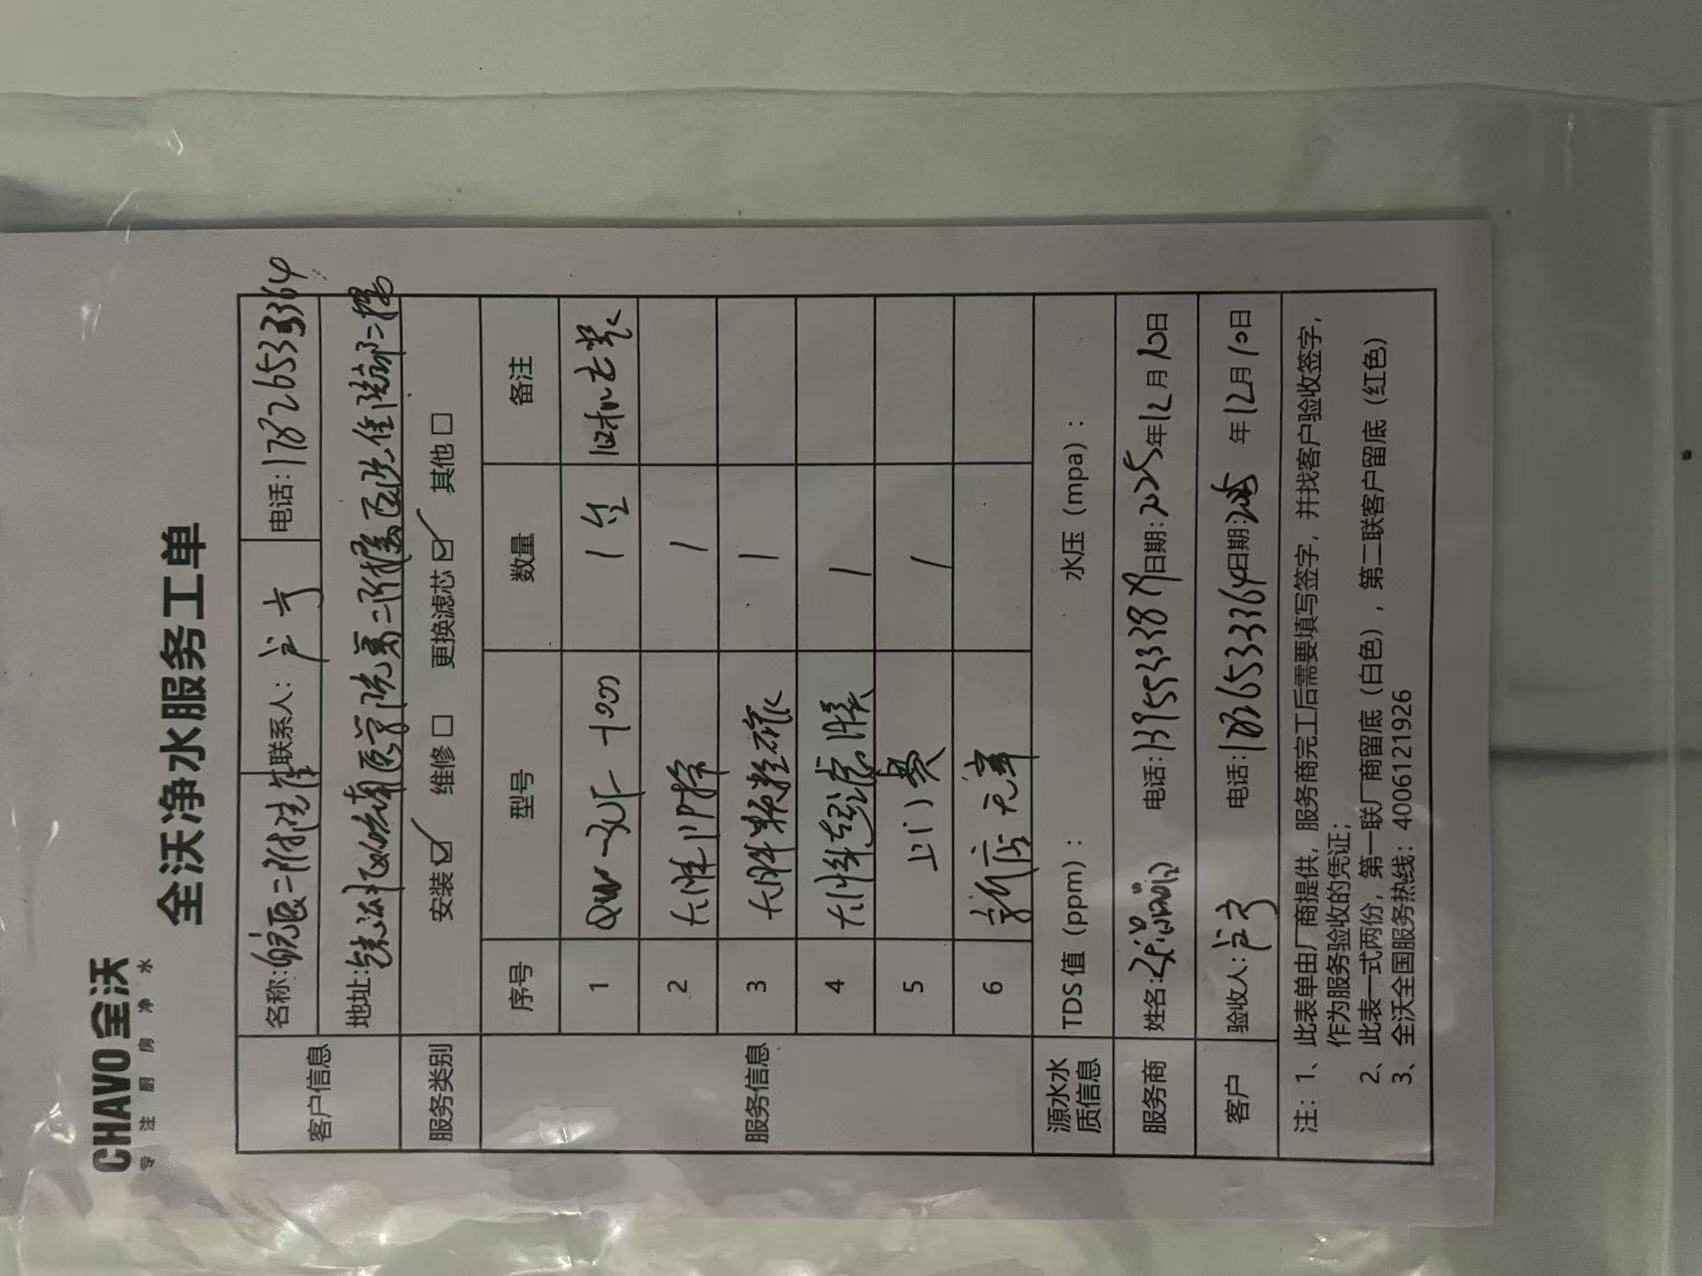 CHAVO 全沃
专注厨房净水
全沃净水服务工单
客户信息
名称:皖医二附院 联系人:卢宁 电话:18265333364
地址:芜湖市皖南医学院第二附属医院住院部二楼
服务类别 安装☑ 维修□ 更换滤芯☑ 其他□
服务信息
序号 型号 数量 备注
1 QW-3UF-1000 1台 旧机已装
2 大胖PP棉 1
3 大胖颗粒炭 1
4 大胖超滤膜 1
5 上门费 1
6 新店无
源水水质信息 TDS值(ppm): 水压(mpa):
服务商 姓名: 电话:13955333879 日期:2025年12月10日
客户 验收人:卢宁 电话:18265333364 日期:2025年12月10日
注:1、此表单由厂商提供,服务商完工后需要填写签字,并找客户验收签字,
作为服务验收的凭证;
2、此表一式两份,第一联厂商留底(白色),第二联客户留底(红色)
3、全沃全国服务热线:4006121926